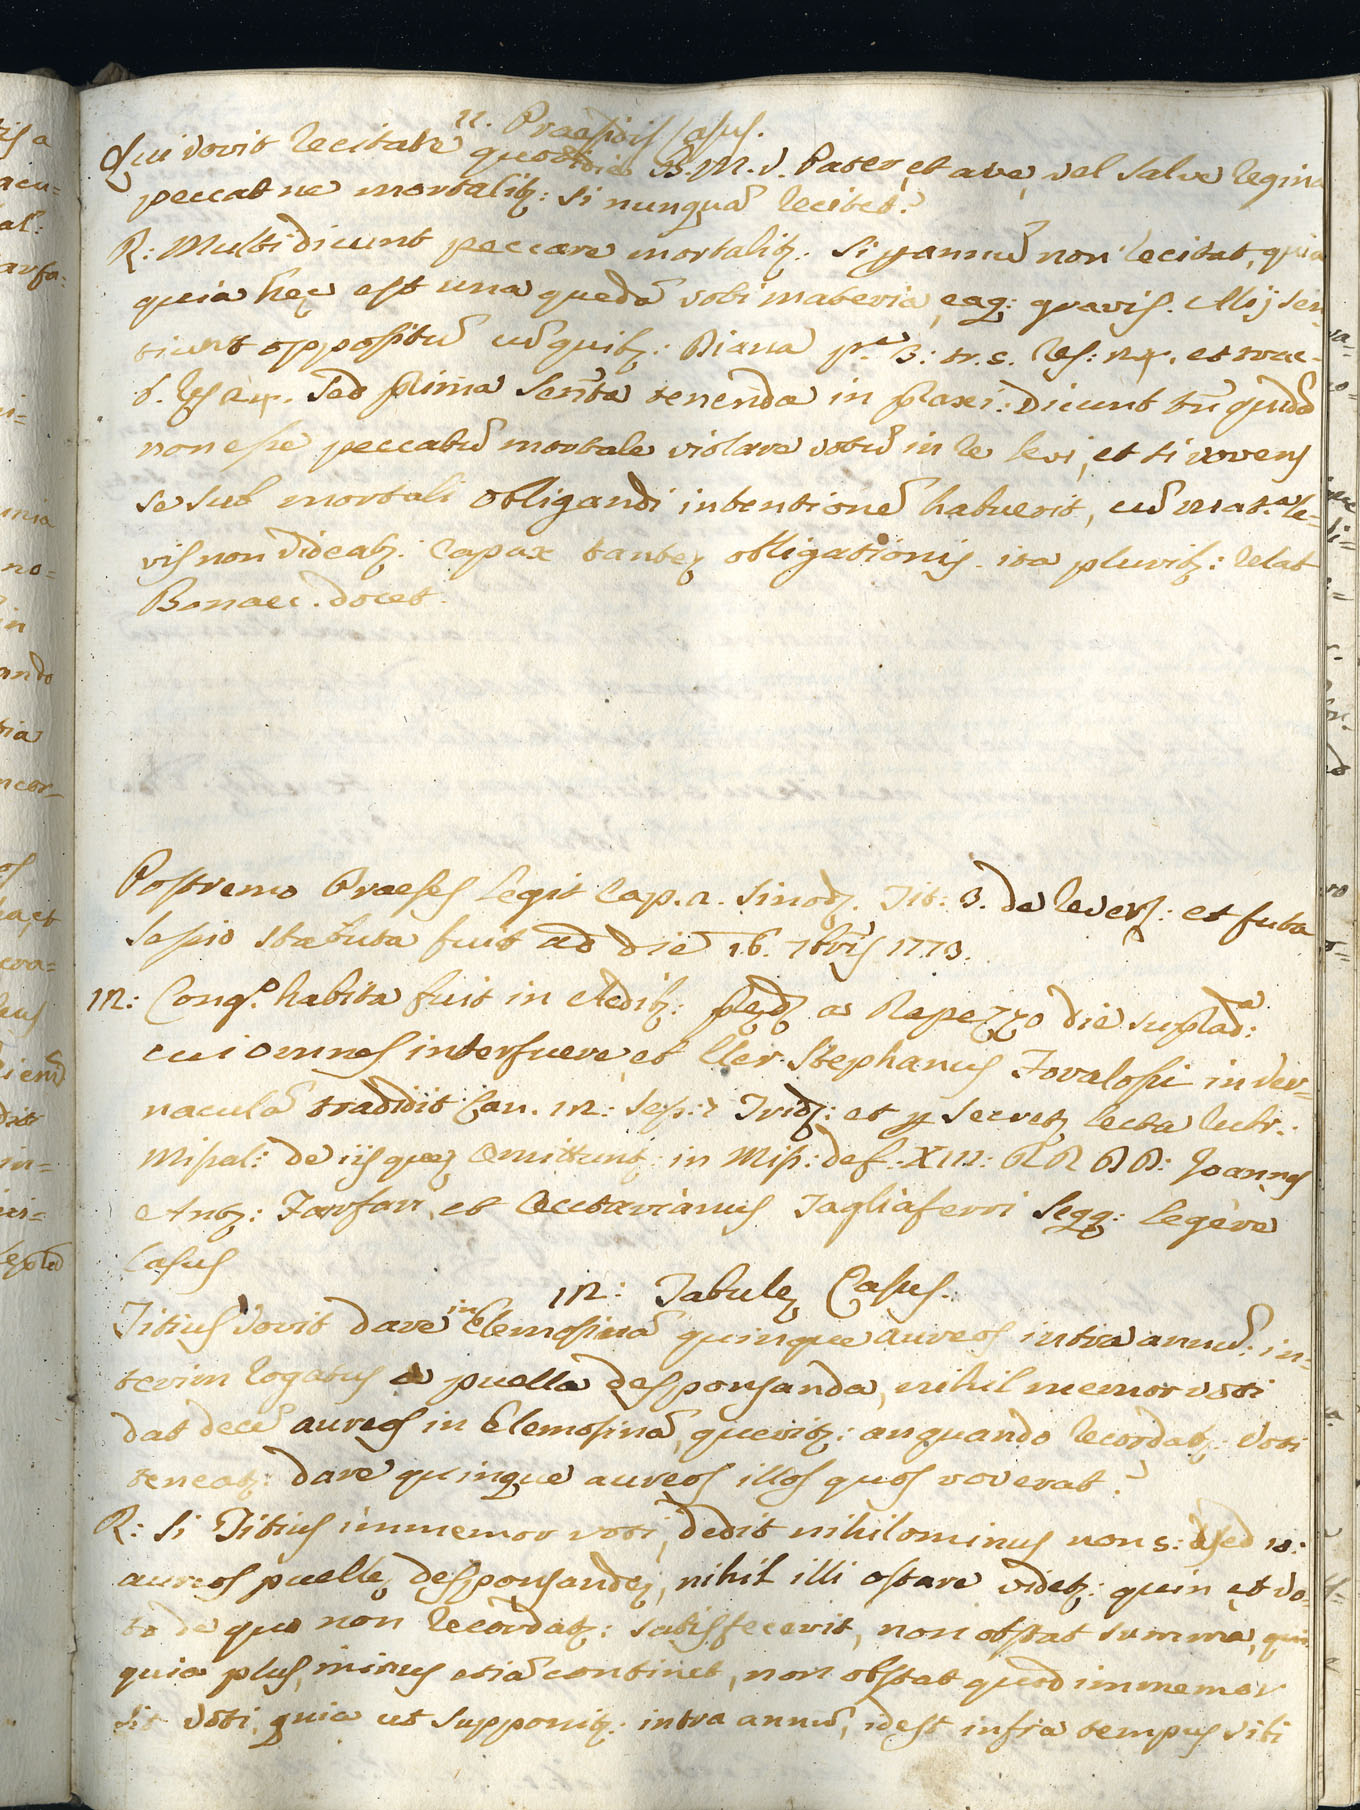 11. Praesidis Casus.
Qui vovit recitare quotidie B.M.V. Pater, et ave, vel salve regina
peccat ne mortalitz: si nunquã recitet?
R: Multi dicunt peccare mortalitz: si p annũ non recitat, quia
quia hęc est una quedã voti materia, eaq: gravis. Alij sen
tiunt oppositũ cũ quitz: Diana p.ª 3: tr. s. res: 24. et trac-
6. res 24. sed prima senta tenenda in praxi: Dicunt tñ quidã
non esse peccatũ mortale violare votũ in re levi, et si vovens
se sub mortali obligandi intentionẽ habuerit, cũ mat.ª le-
vis non videatz: capax tantę obligationis. ita pluritz: relat
Bonacc. docet.
Postremo Praeses legit Cap. 2. Sinodz. Tit: 3. de Reverz: et futa
sessio statuta fuit ad diẽ 16. 7bris 1773.
12: Congº. habita fuit in Aeditz: pędz a Repezzo die suplad:
cui omnes interfuere, et Cler. Stephanus Fovalossi in ver-
naculã tradidit Can. 12: sess: 7 Tridz: et p secretz lecta rubr:
Missal: de iis quę omittunt in Miss: def: XIII: RR DD: Joannes
Antz: Farfan, et Occtavianus Tagliaferri seqq: legere
Casus
12: Tabulę Casus.
Titius vovit dare in Elemosinã quinque aureos intra annũ: in-
terim rogatus a puella desponsanda, nihil memor voti
dat decẽ aureos in Elemosinã, queritz: an quando recordatz: voti
teneatz: dare quinque aureos illos quos voverat?
R: Si Titius immemor voti, dedit nihilominus non 5: sed 10:
aureos puellę desponsandę, nihil illi ostare videtz: quin et vo-
to de quo non recordatz: satisfecerit, non obstat summa, qui
quia plus, minus etiã continet, non obstat quod immemor
sit voti, quia ut supponitz: intra annũ, idest infra tempus viti